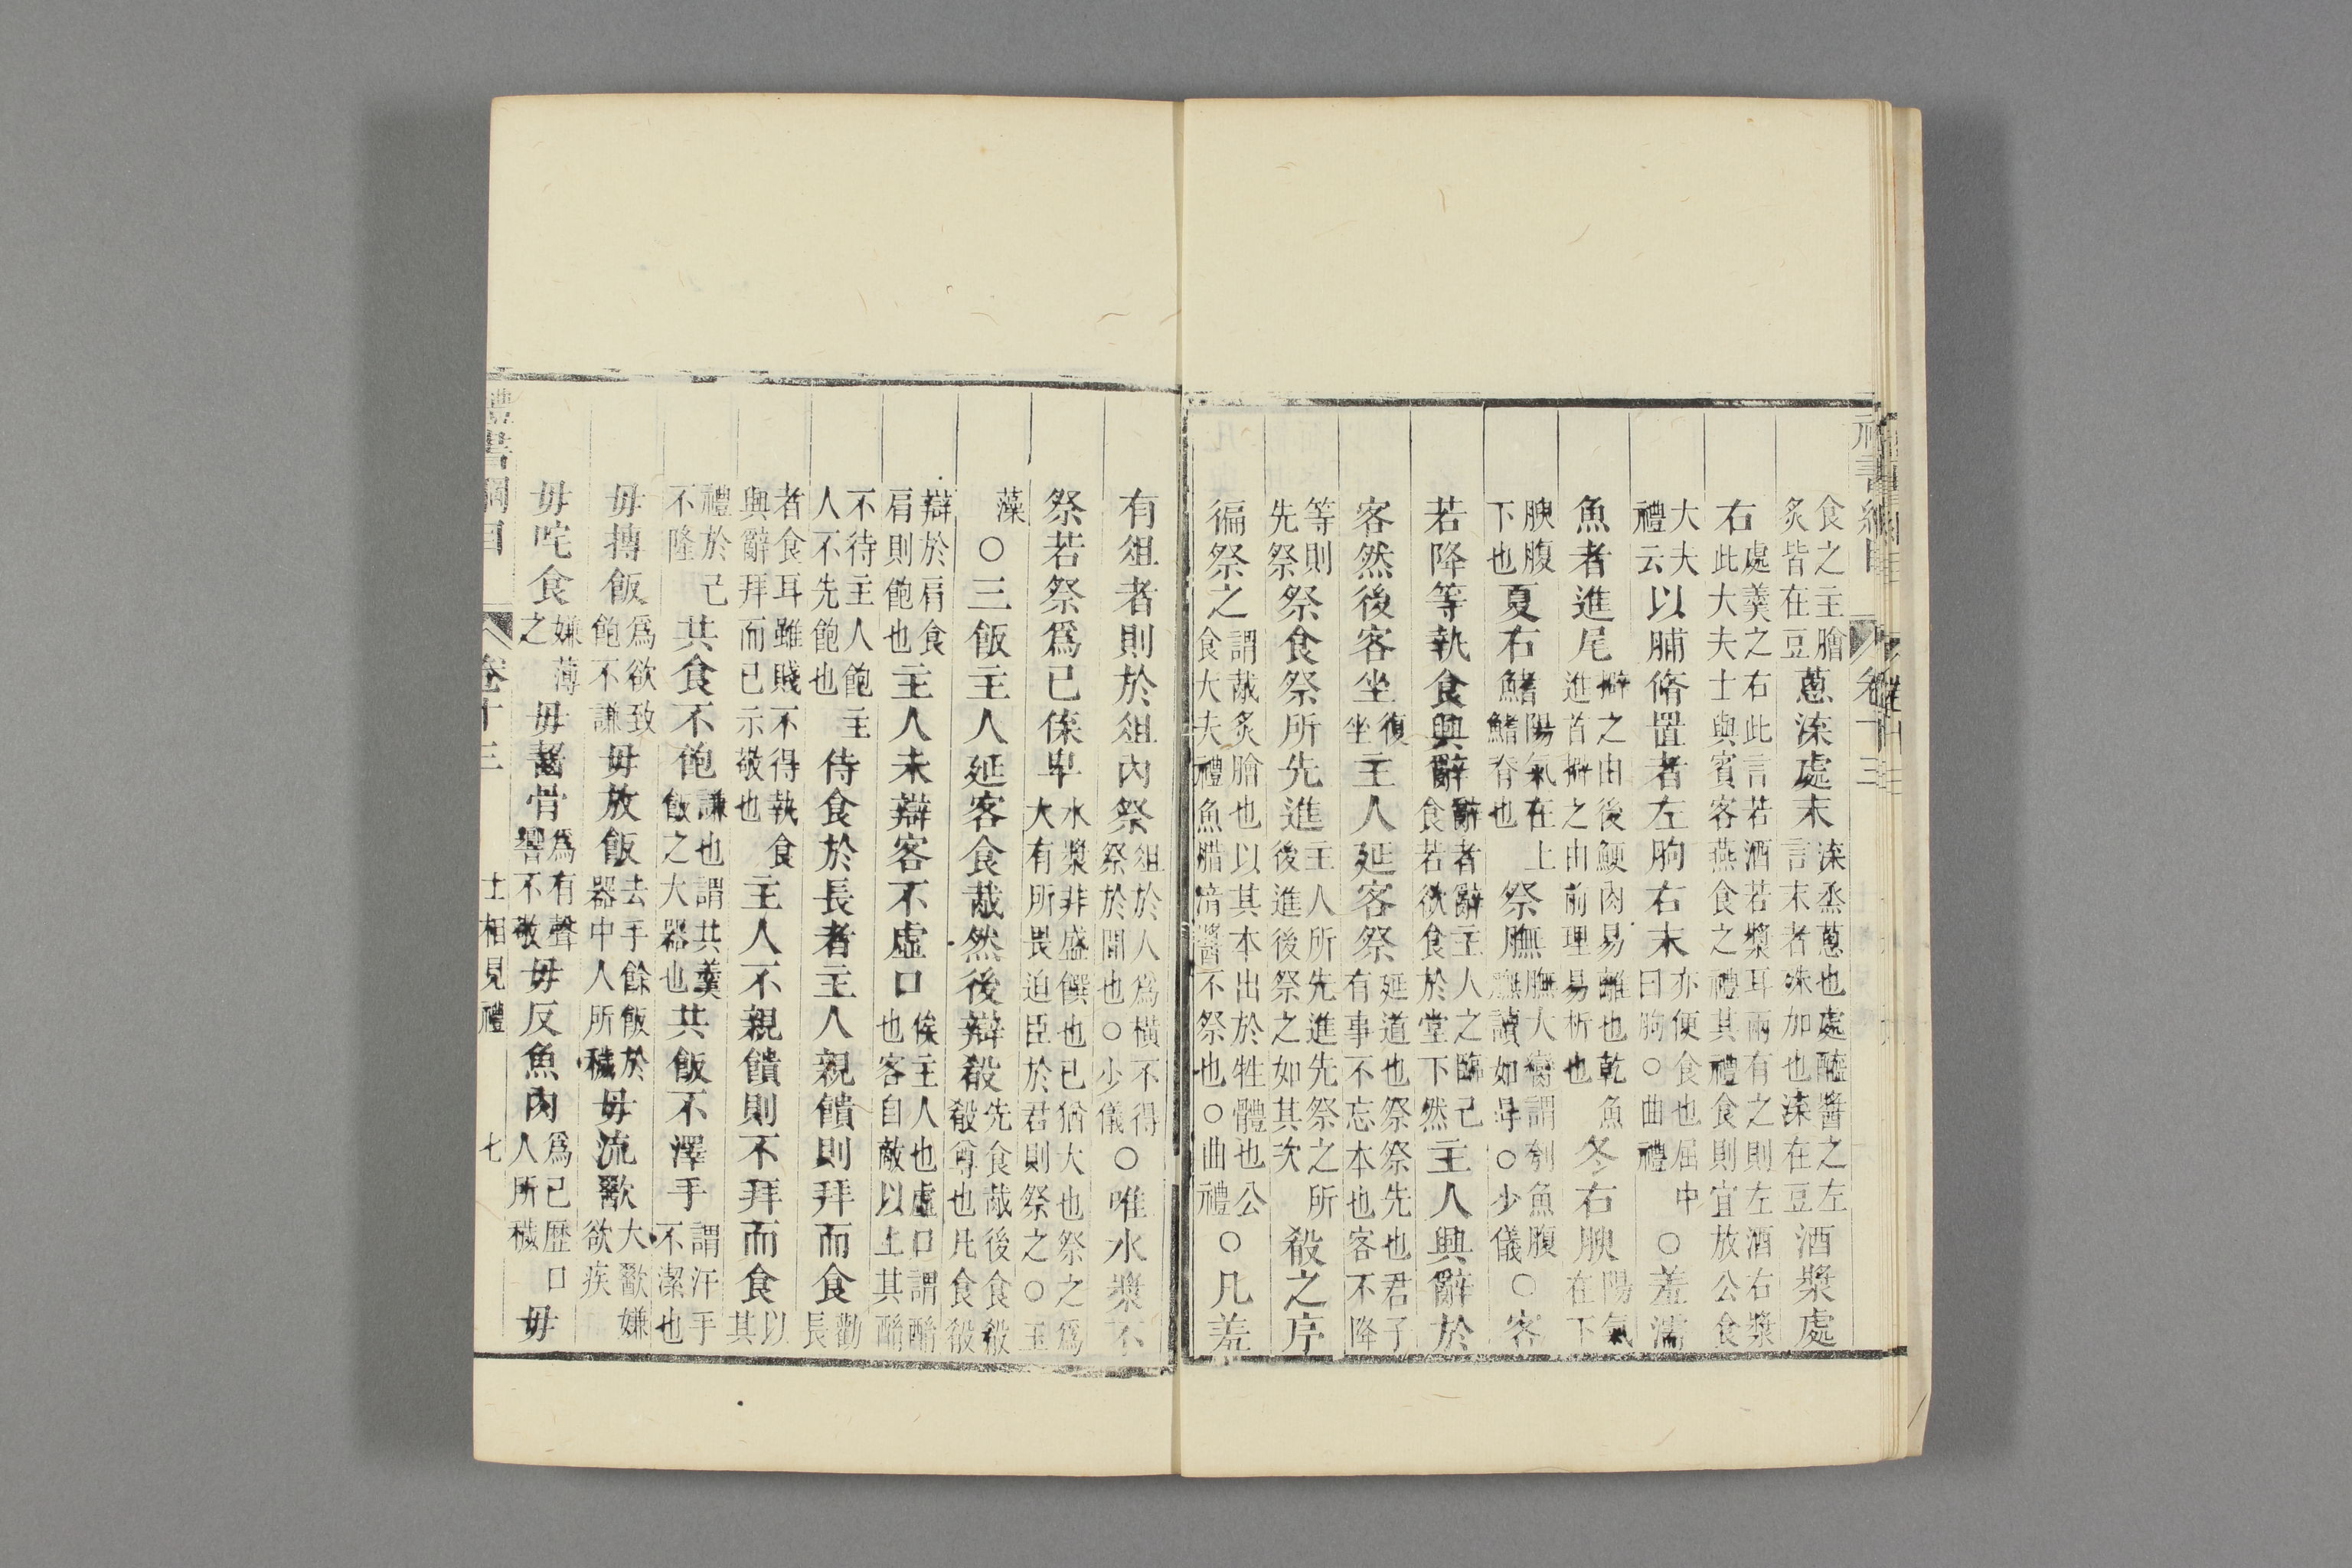 禮書綱目 卷十三
食之主膾炙皆在豆蔥渫處末渫烝蔥也處醯醬之左言末者殊加也渫在豆酒漿處
右處羹之右此言若酒若漿耳兩有之則左酒右漿此大夫士與賓客燕食之禮其禮食則宜放公食
大夫禮云以脯脩置者左朐右末亦便食也屈中曰朐○曲禮○羞濡
魚者進尾擗之由後鯁肉易離也乾魚進首擗之由前理易析也冬右腴陽氣在下
腴腹下也夏右鰭陽氣在上鰭脊也祭膴膴大臠謂刳魚腹膴讀如冔○少儀○客
若降等執食興辭辭者辭主人之臨己食若欲食於堂下然主人興辭於
客然後客坐復坐主人延客祭延道也祭祭先也君子有事不忘本也客不降
等則先祭祭食祭所先進主人所先進先祭之所後進後祭之如其次殽之序
徧祭之謂胾炙膾也以其本出於牲體也公食大夫禮魚腊湆醬不祭也○曲禮○凡羞
有俎者則於俎內祭俎於人爲橫不得祭於間也○少儀○唯水漿不
祭若祭爲已傃卑水漿非盛饌也已猶大也祭之爲大有所畏迫臣於君則祭之○玉
藻○三飯主人延客食胾然後辯殽先食胾後食殽殽尊也凡食殽
辯於肩食肩則飽也主人未辯客不虛口俟主人也虛口謂酳也客自敵以上其酳
不待主人飽主人不先飽也侍食於長者主人親饋則拜而食勸長
者食耳雖賤不得執食興辭拜而已示敬也主人不親饋則不拜而食以其
禮於己不隆共食不飽謙也謂共羹飯之大器也共飯不澤手謂汗手不潔也
毋摶飯爲欲致飽不謙毋放飯去手餘飯於器中人所穢毋流歠大歠嫌欲疾
毋咤食嫌薄之毋齧骨爲有聲響不敬毋反魚肉爲已歷口人所穢毋
禮書綱目 卷十三 士相見禮 七